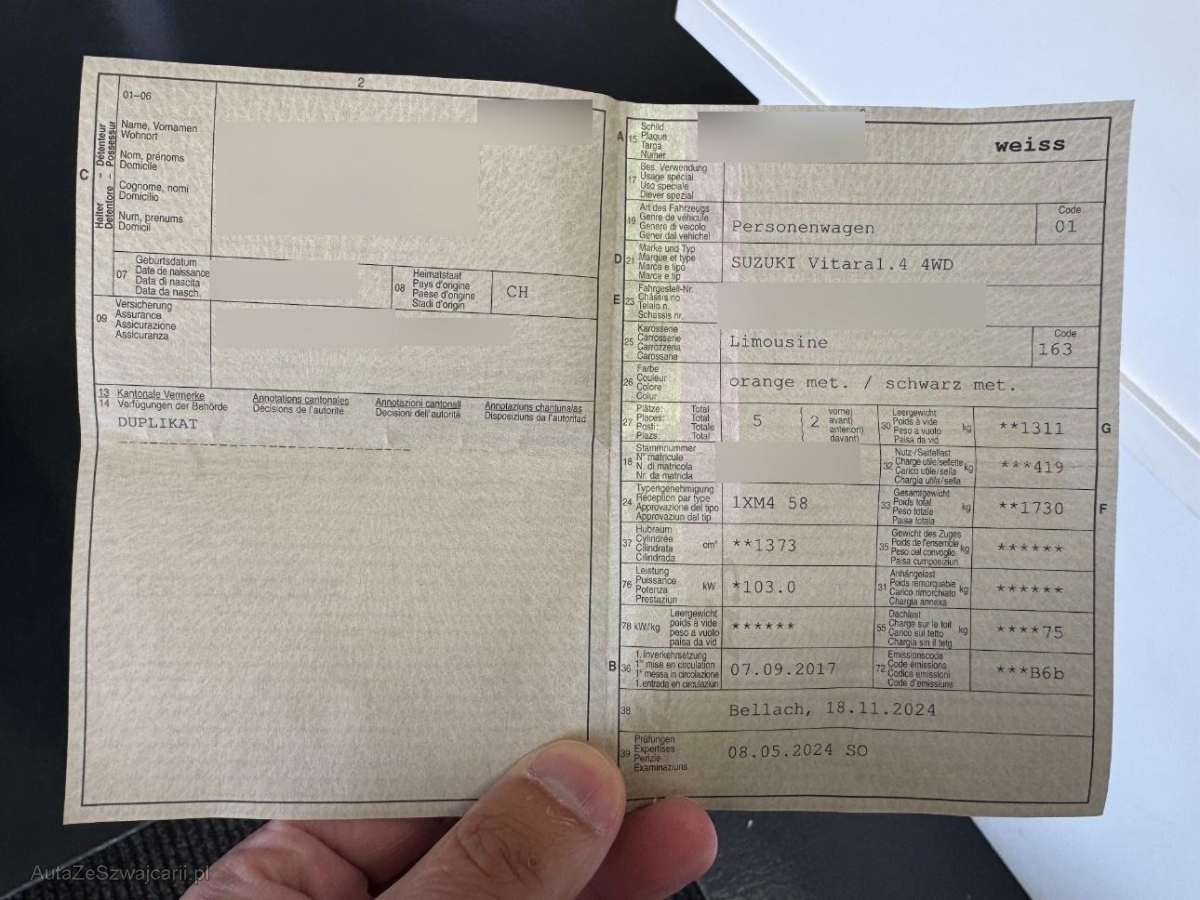 2
01-06
C
Halter - Détenteur
Detentore - Possessur
Name, Vornamen
Wohnort
Nom, prénoms
Domicile
Cognome, nomi
Domicilio
Num, prenums
Domicil
07
Geburtsdatum
Date de naissance
Data di nascita
Data da nasch.
08
Heimatstaat
Pays d'origine
Paese d'origine
Stadi d'origin
CH
09
Versicherung
Assurance
Assicurazione
Assicuranza
13 Kantonale Vermerke Annotations cantonales Annotazioni cantonali Annotaziuns chantunalas
14 Verfügungen der Behörde Décisions de l'autorité Decisioni dell'autorità Disposiziuns da l'autoritad
DUPLIKAT
A 15
Schild
Plaque
Targa
Numer
weiss
17
Bes. Verwendung
Usage spécial
Uso speciale
Diever spezial
19
Art des Fahrzeugs
Genre de véhicule
Genere di veicolo
Gener dal vehichel
Personenwagen
Code
01
D 21
Marke und Typ
Marque et type
Marca e tipo
Marca e tip
SUZUKI Vitara1.4 4WD
E 23
Fahrgestell-Nr.
Châssis no
Telaio n.
Schassis nr.
25
Karosserie
Carrosserie
Carrozzeria
Carossaria
Limousine
Code
163
26
Farbe
Couleur
Colore
Colur
orange met. / schwarz met.
27
Plätze: Total
Places: Total
Posti: Totale
Plazs: Total
5
2
vorne)
avant)
anteriori)
davant)
30
Leergewicht
Poids à vide
Peso a vuoto
Paisa da vid
kg
**1311
G
18
Stammnummer
N° matricule
N. di matricola
Nr. da matricla
32
Nutz-/Sattellast
Charge utile/sellette
Carico utile/sella
Chargia utila/sella
kg
***419
24
Typengenehmigung
Réception par type
Approvazione del tipo
Approvaziun dal tip
1XM4 58
33
Gesamtgewicht
Poids total
Peso totale
Paisa totala
kg
**1730
F
37
Hubraum
Cylindrée
Cilindrata
Cilindrada
cm³
**1373
35
Gewicht des Zuges
Poids de l'ensemble
Peso del convoglio
Paisa cumposiziun
kg
******
76
Leistung
Puissance
Potenza
Prestaziun
kW
*103.0
31
Anhängelast
Poids remorquable
Carico rimorchiato
Chargia annexa
kg
******
78 kW/kg
Leergewicht
poids à vide
peso a vuoto
paisa da vid
******
55
Dachlast
Charge sur le toit
Carico sul tetto
Chargia sin il tetg
kg
****75
B 36
1. Inverkehrsetzung
1re mise en circulation
1a messa in circolazione
1. entrada en circulaziun
07.09.2017
72
Emissionscode
Code émissions
Codice emissioni
Code d'emissiuns
***B6b
38
Bellach, 18.11.2024
39
Prüfungen
Expertises
Perizie
Examinaziuns
08.05.2024 SO
AutaZeSzwajcarii.pl